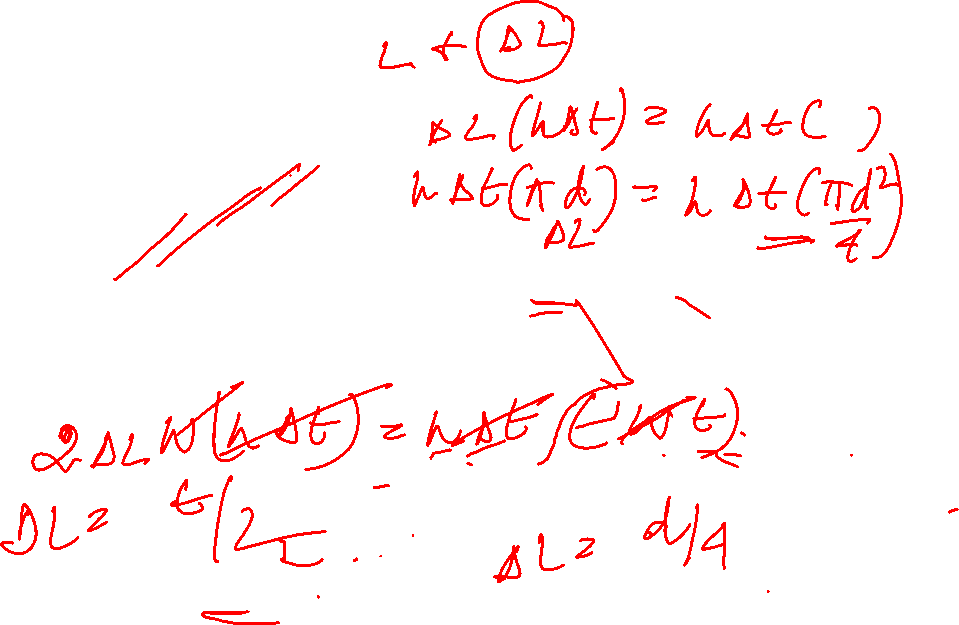 L + ΔL
ΔL (hΔt) = hΔt ( )
hΔt (πd) = h Δt (πd²/4)
ΔL
2ΔL w(hΔt) = hΔt (w t)
ΔL = t/2
ΔL = d/4